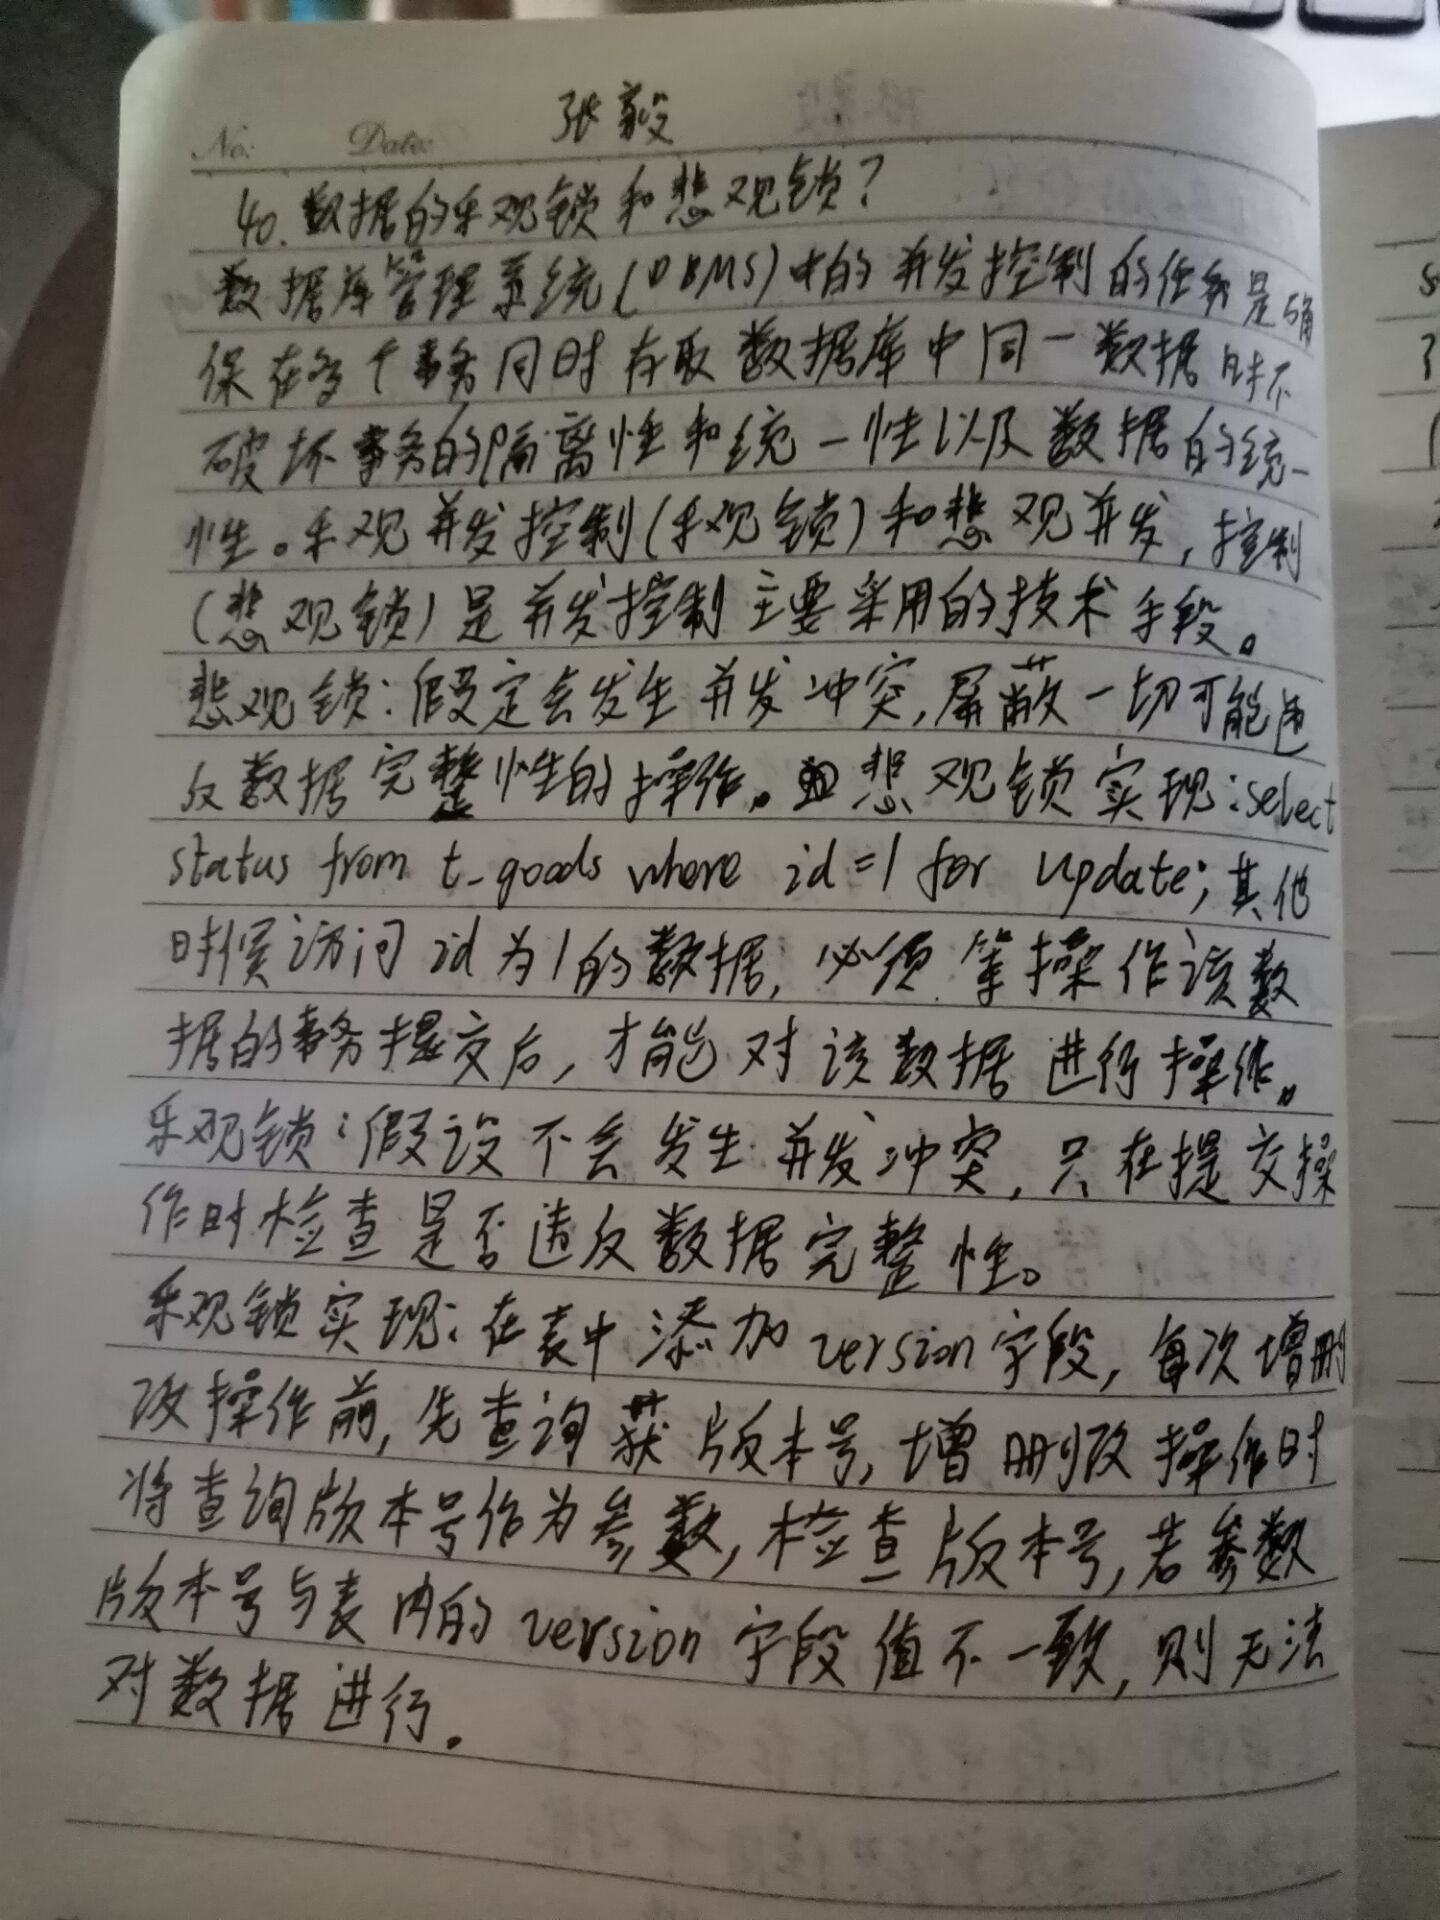 张毅
No: Date:
40.数据的乐观锁和悲观锁?
数据库管理系统(DBMS)中的并发控制的任务是确
保在多个事务同时存取数据库中同一数据时不
破坏事务的隔离性和统一性以及数据的统一
性。乐观并发控制(乐观锁)和悲观并发,控制
(悲观锁)是并发控制主要采用的技术手段。
悲观锁:假定会发生并发冲突,屏蔽一切可能违
反数据完整性的操作。悲观锁实现:select
status from t_goods where id=1 for update;其他
时候访问id为1的数据,必须等操作该数
据的事务提交后,才能对该数据进行操作。
乐观锁:假设不会发生并发冲突,只在提交操
作时检查是否违反数据完整性。
乐观锁实现:在表中添加version字段,每次增删
改操作前,先查询获版本号,增删改操作时
将查询版本号作为参数,检查版本号,若参数
版本号与表内的version字段值不一致,则无法
对数据进行.